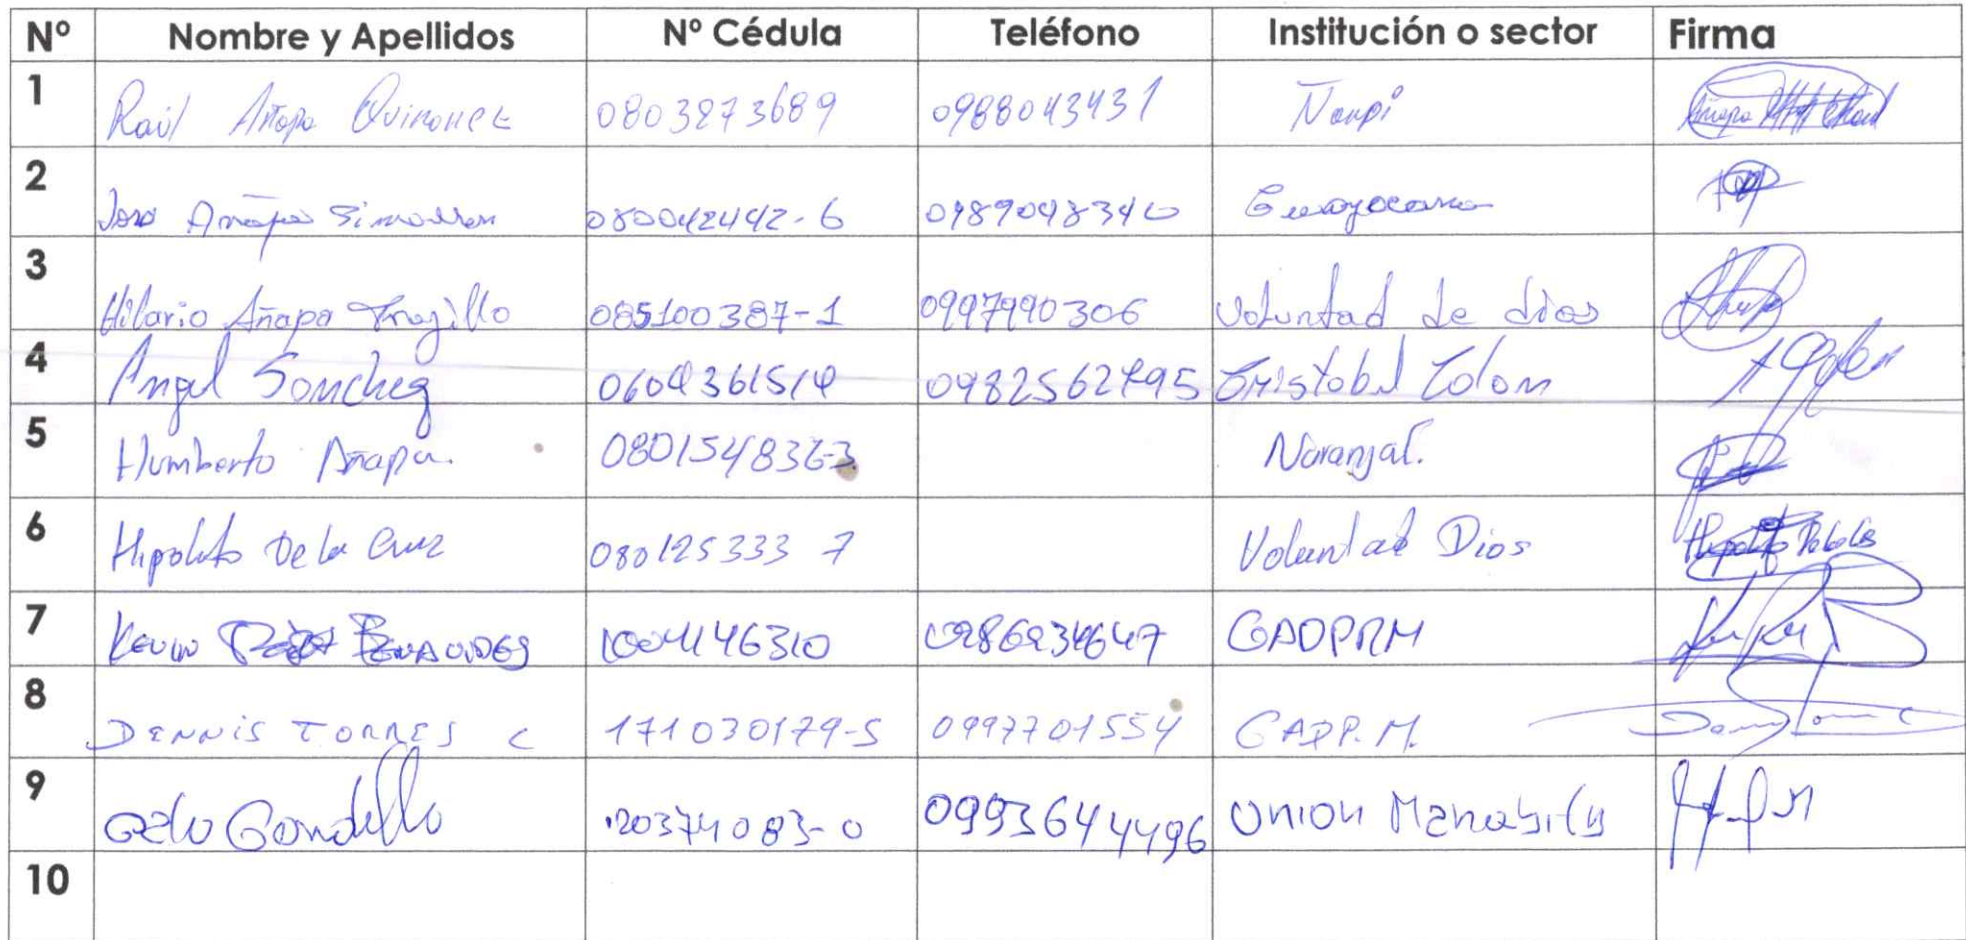 Nº Nombre y Apellidos Nº Cédula Teléfono Institución o sector Firma
1 Raúl Añapa Quinonez 0803873689 0988043431 Ñanpi
2 Jose Añapa 080042442-6 0989048340
3 Hilario Añapa Trujillo 085100387-1 0997990306 Voluntad de dios
4 Angel Sanchez 0604361514 0982562495 Cristobal Colon
5 Humberto Añapa. 080154836-3 Naranjal.
6 Hipolito De la Cruz 080125333 7 Voluntad Dios
7 Kevin Benavides 1004146310 0986934647 GADPRM
8 DENNIS TORRES C 171030179-5 0997701554 GADP.M.
9 Gondillo 120374083-0 0993644496 Union Manabita
10